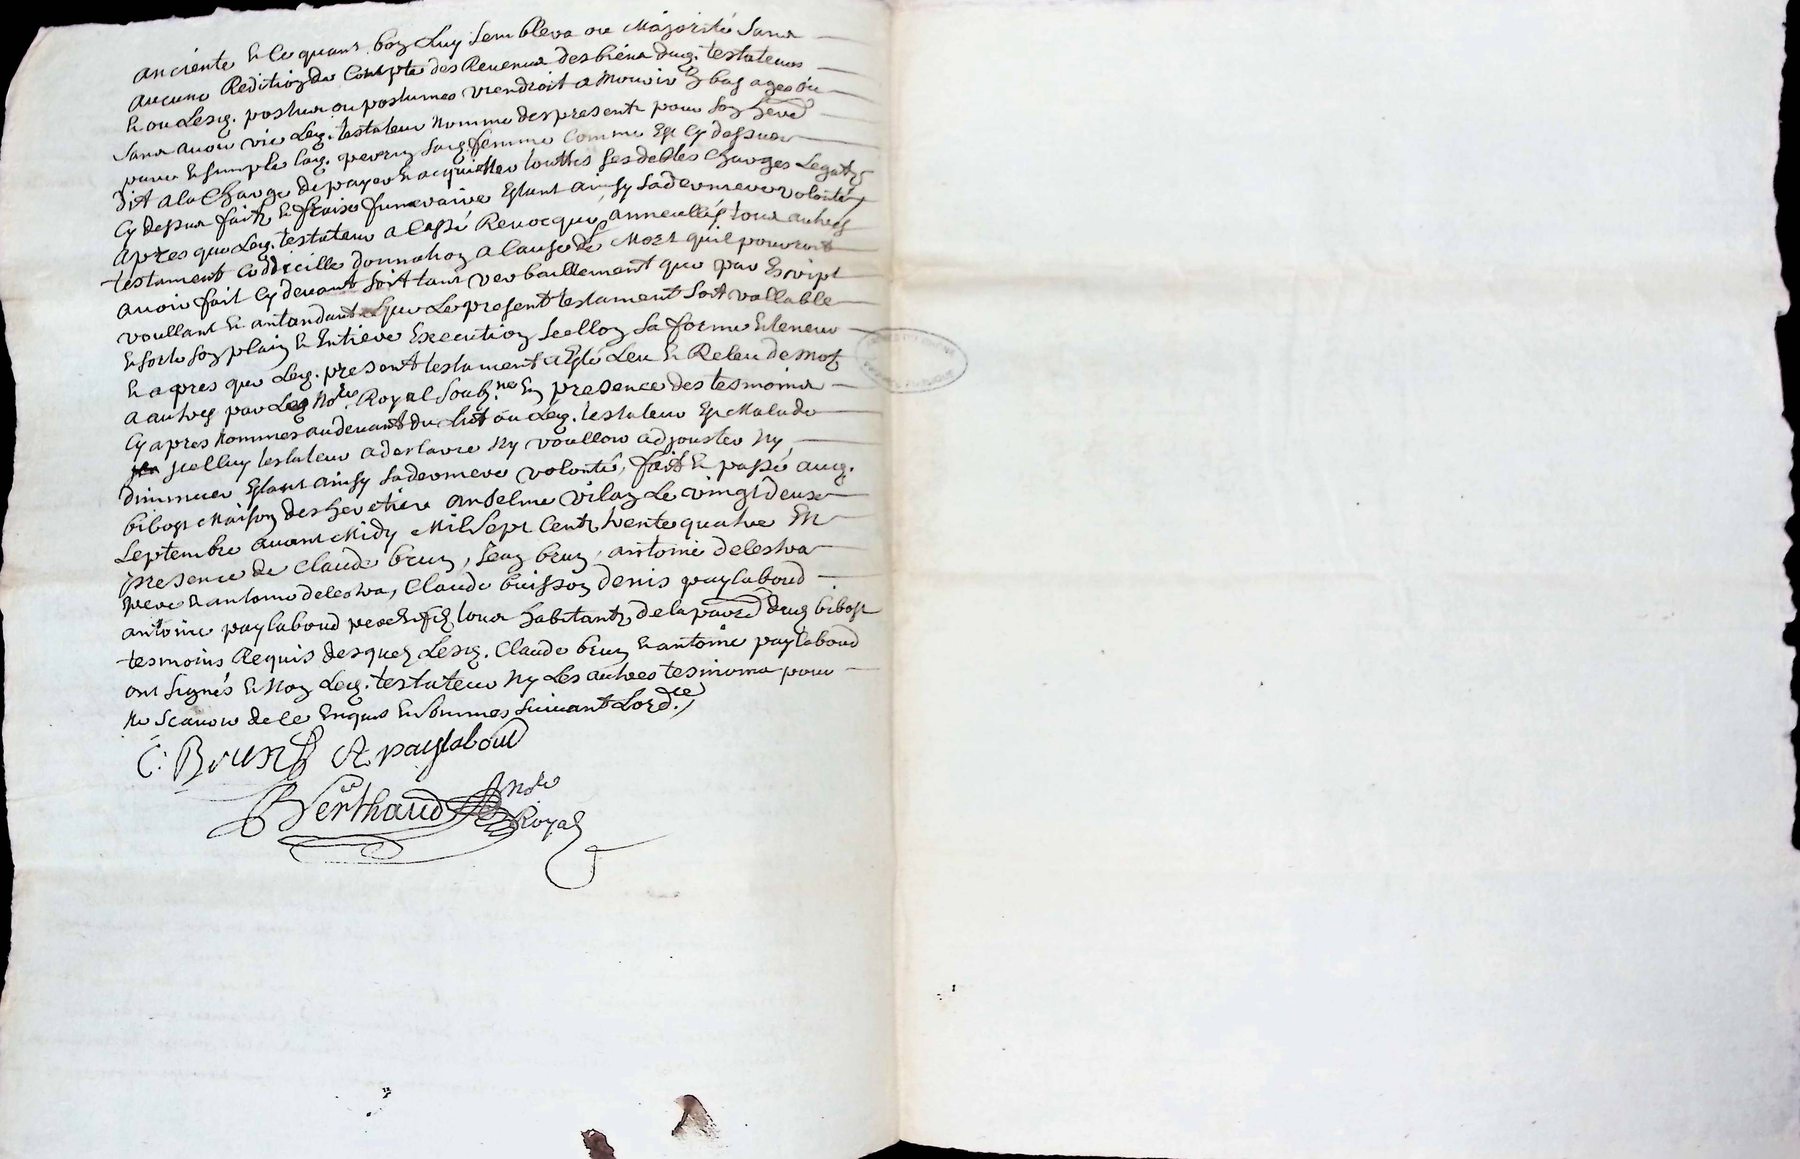 anciente & ce quant bon Luy semblera ou Majorité sans
aucune Redition de Compte des Revenus des biens dud. testateur
& ou Lesd. postume ou postumes viendroit a Mourir En bas age ou
sans avoir vie Led. testateur nomme des present pour son
& simple lad. sad. femme Comme Est Cy dessus
dit a la Charge de payer & acquitter touttes ses debtes Charges Legatz
Cy dessus faitz & fraix funeraire Estant ainsy sa derniere volonté
apres que Led. testateur a Cassé Revocqué, annullés tous autres
testament Coddicille donnation a Cause de Mort quil pourroit
avoir fait Cy devant soit tant verballement que par Escript
voullant & antandant que Le present testament soit vallable
& sorte son plain & Entiere Execution seellon sa forme & teneur
& apres que Led. present testament a Esté Leu & Releu de mot
a autres par Led No.re Royal soub.né En presence des tesmoins
Cy apres nommes au devant du Lict ou Led. testateur Est Malade
jcelluy testateur a desclaire Ny voulloir adjouster Ny
diminuer Estant ainsy sa derniere volonté, fait & passé aud.
bibost Maison des heretiers anselme vilan Le vingt deux
septembre avant Midy Mil sept Centz trente quatre En
presence de Claude brun, Jean brun, antoine delestra
pere & antoine delestra, Claude buisson denis paylaboud
antoine paylaboud pere & filz tous habitantz de la parr. dud bibost
tesmoins Requis desquelz Lesd. Claude brun & antoine paylaboud
ont signés & Non Led. testateur Ny Les autres tesmoins pour
Ne scavoir de ce Enquis & sommes suivant Lord.ce
C. Brun A paylaboud
Berthaud No.re
Royal